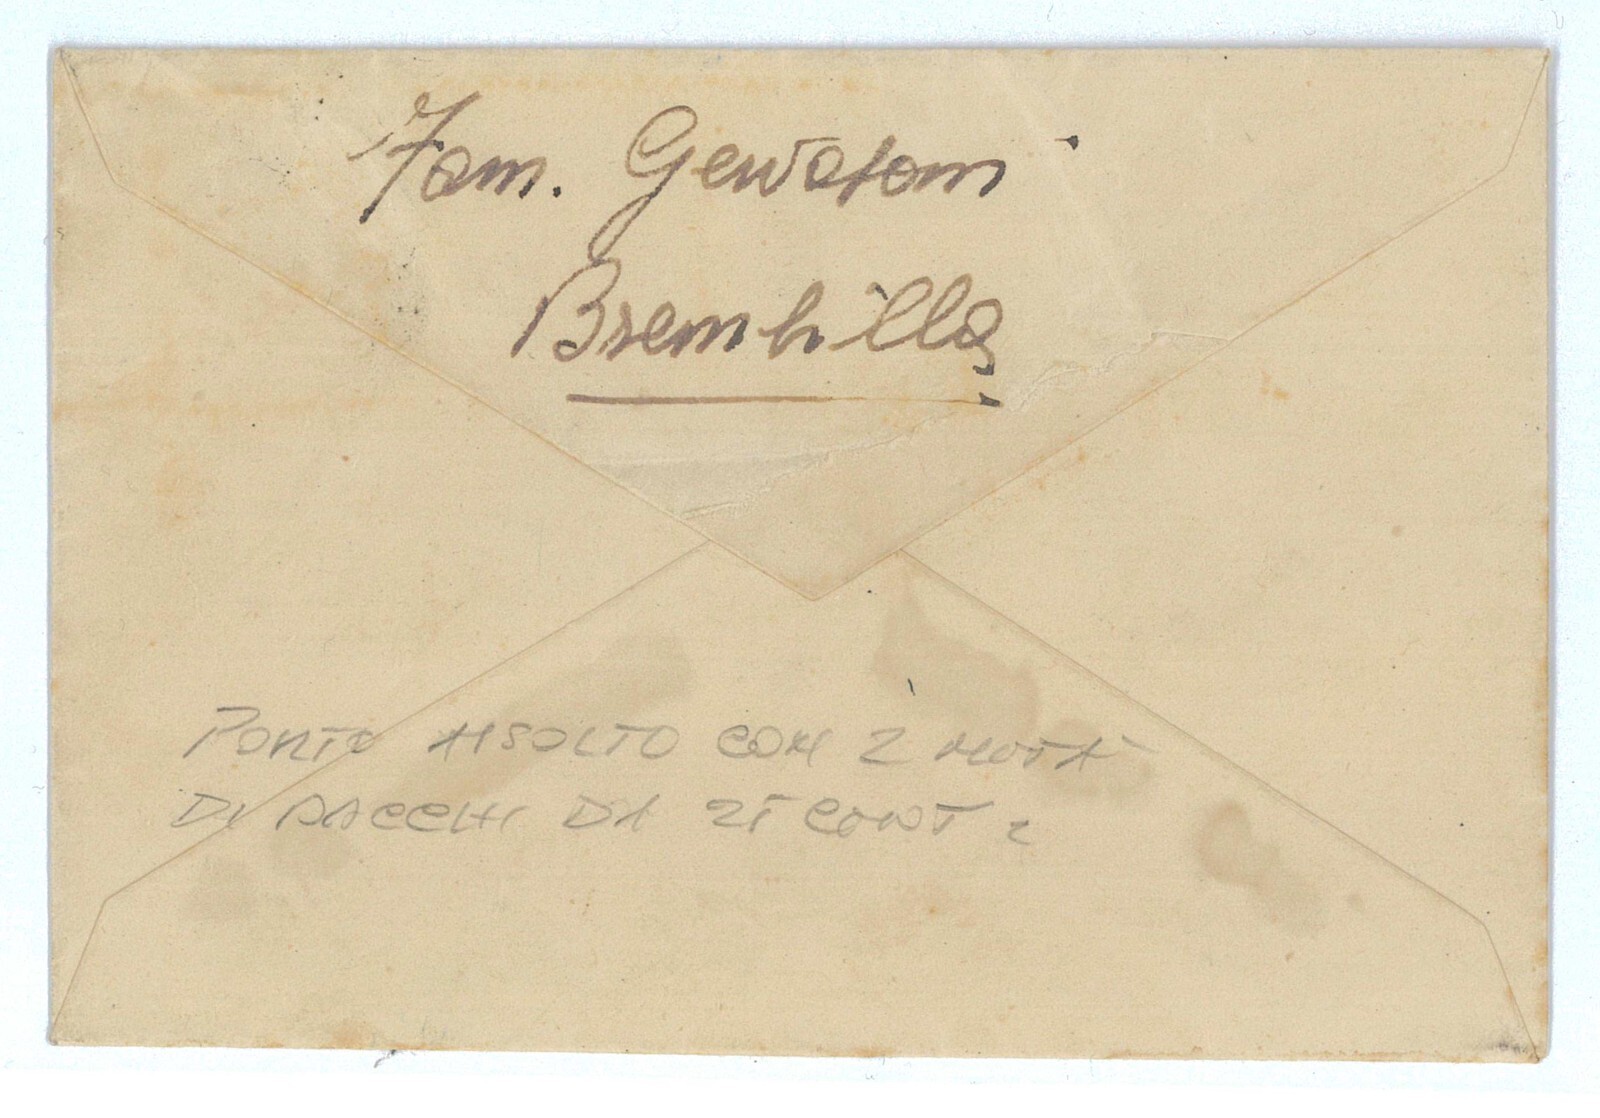 Fam. Gervasoni
Brembilla
PORTO ASSOLTO CON 2 METÀ
DI PACCHI DA 25 CENT